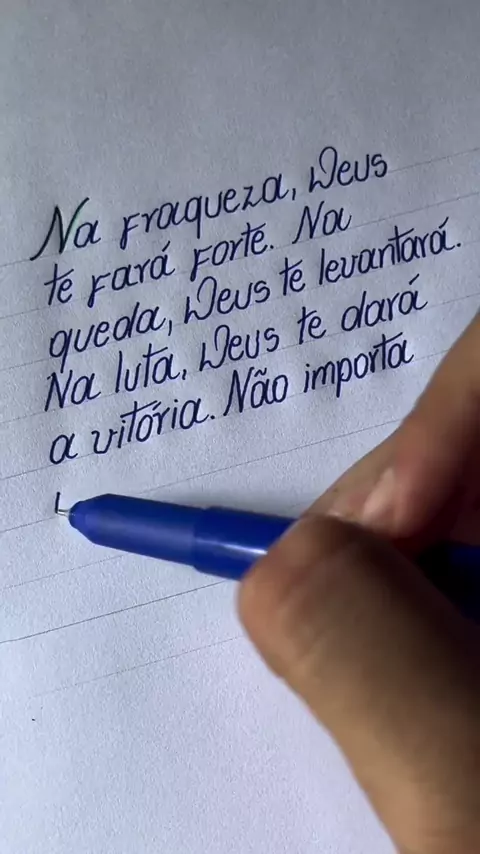 Na fraqueza, Deus
te fará forte. Na
queda, Deus te levantará.
Na luta, Deus te dará
a vitória. Não importa